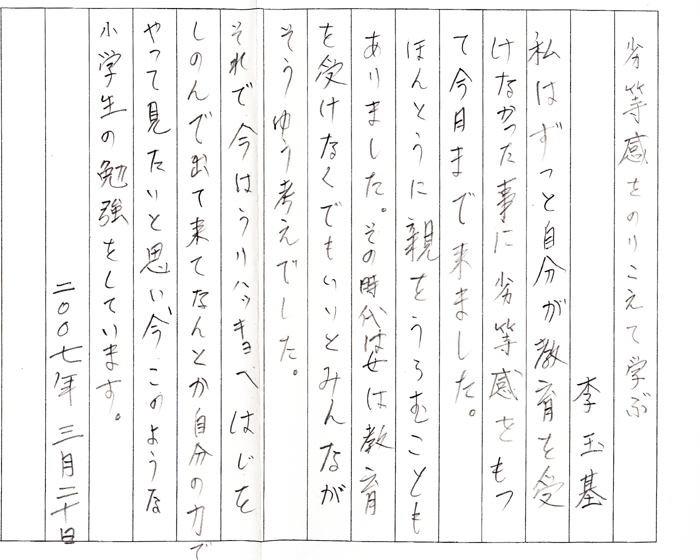 劣等感をのりこえて学ぶ
李玉基
私はずっと自分が教育を受
けなかった事に劣等感をもっ
て今日まで来ました。
ほんとうに親をうらむことも
ありました。その時代は女は教育
を受けなくでもいいとみんなが
そうゆう考えでした。
それで今はウリハッキョへはじを
しのんで出て来てなんとか自分の力で
やって見たいと思い、今、このような
小学生の勉強をしています。
二〇〇七年三月二十日